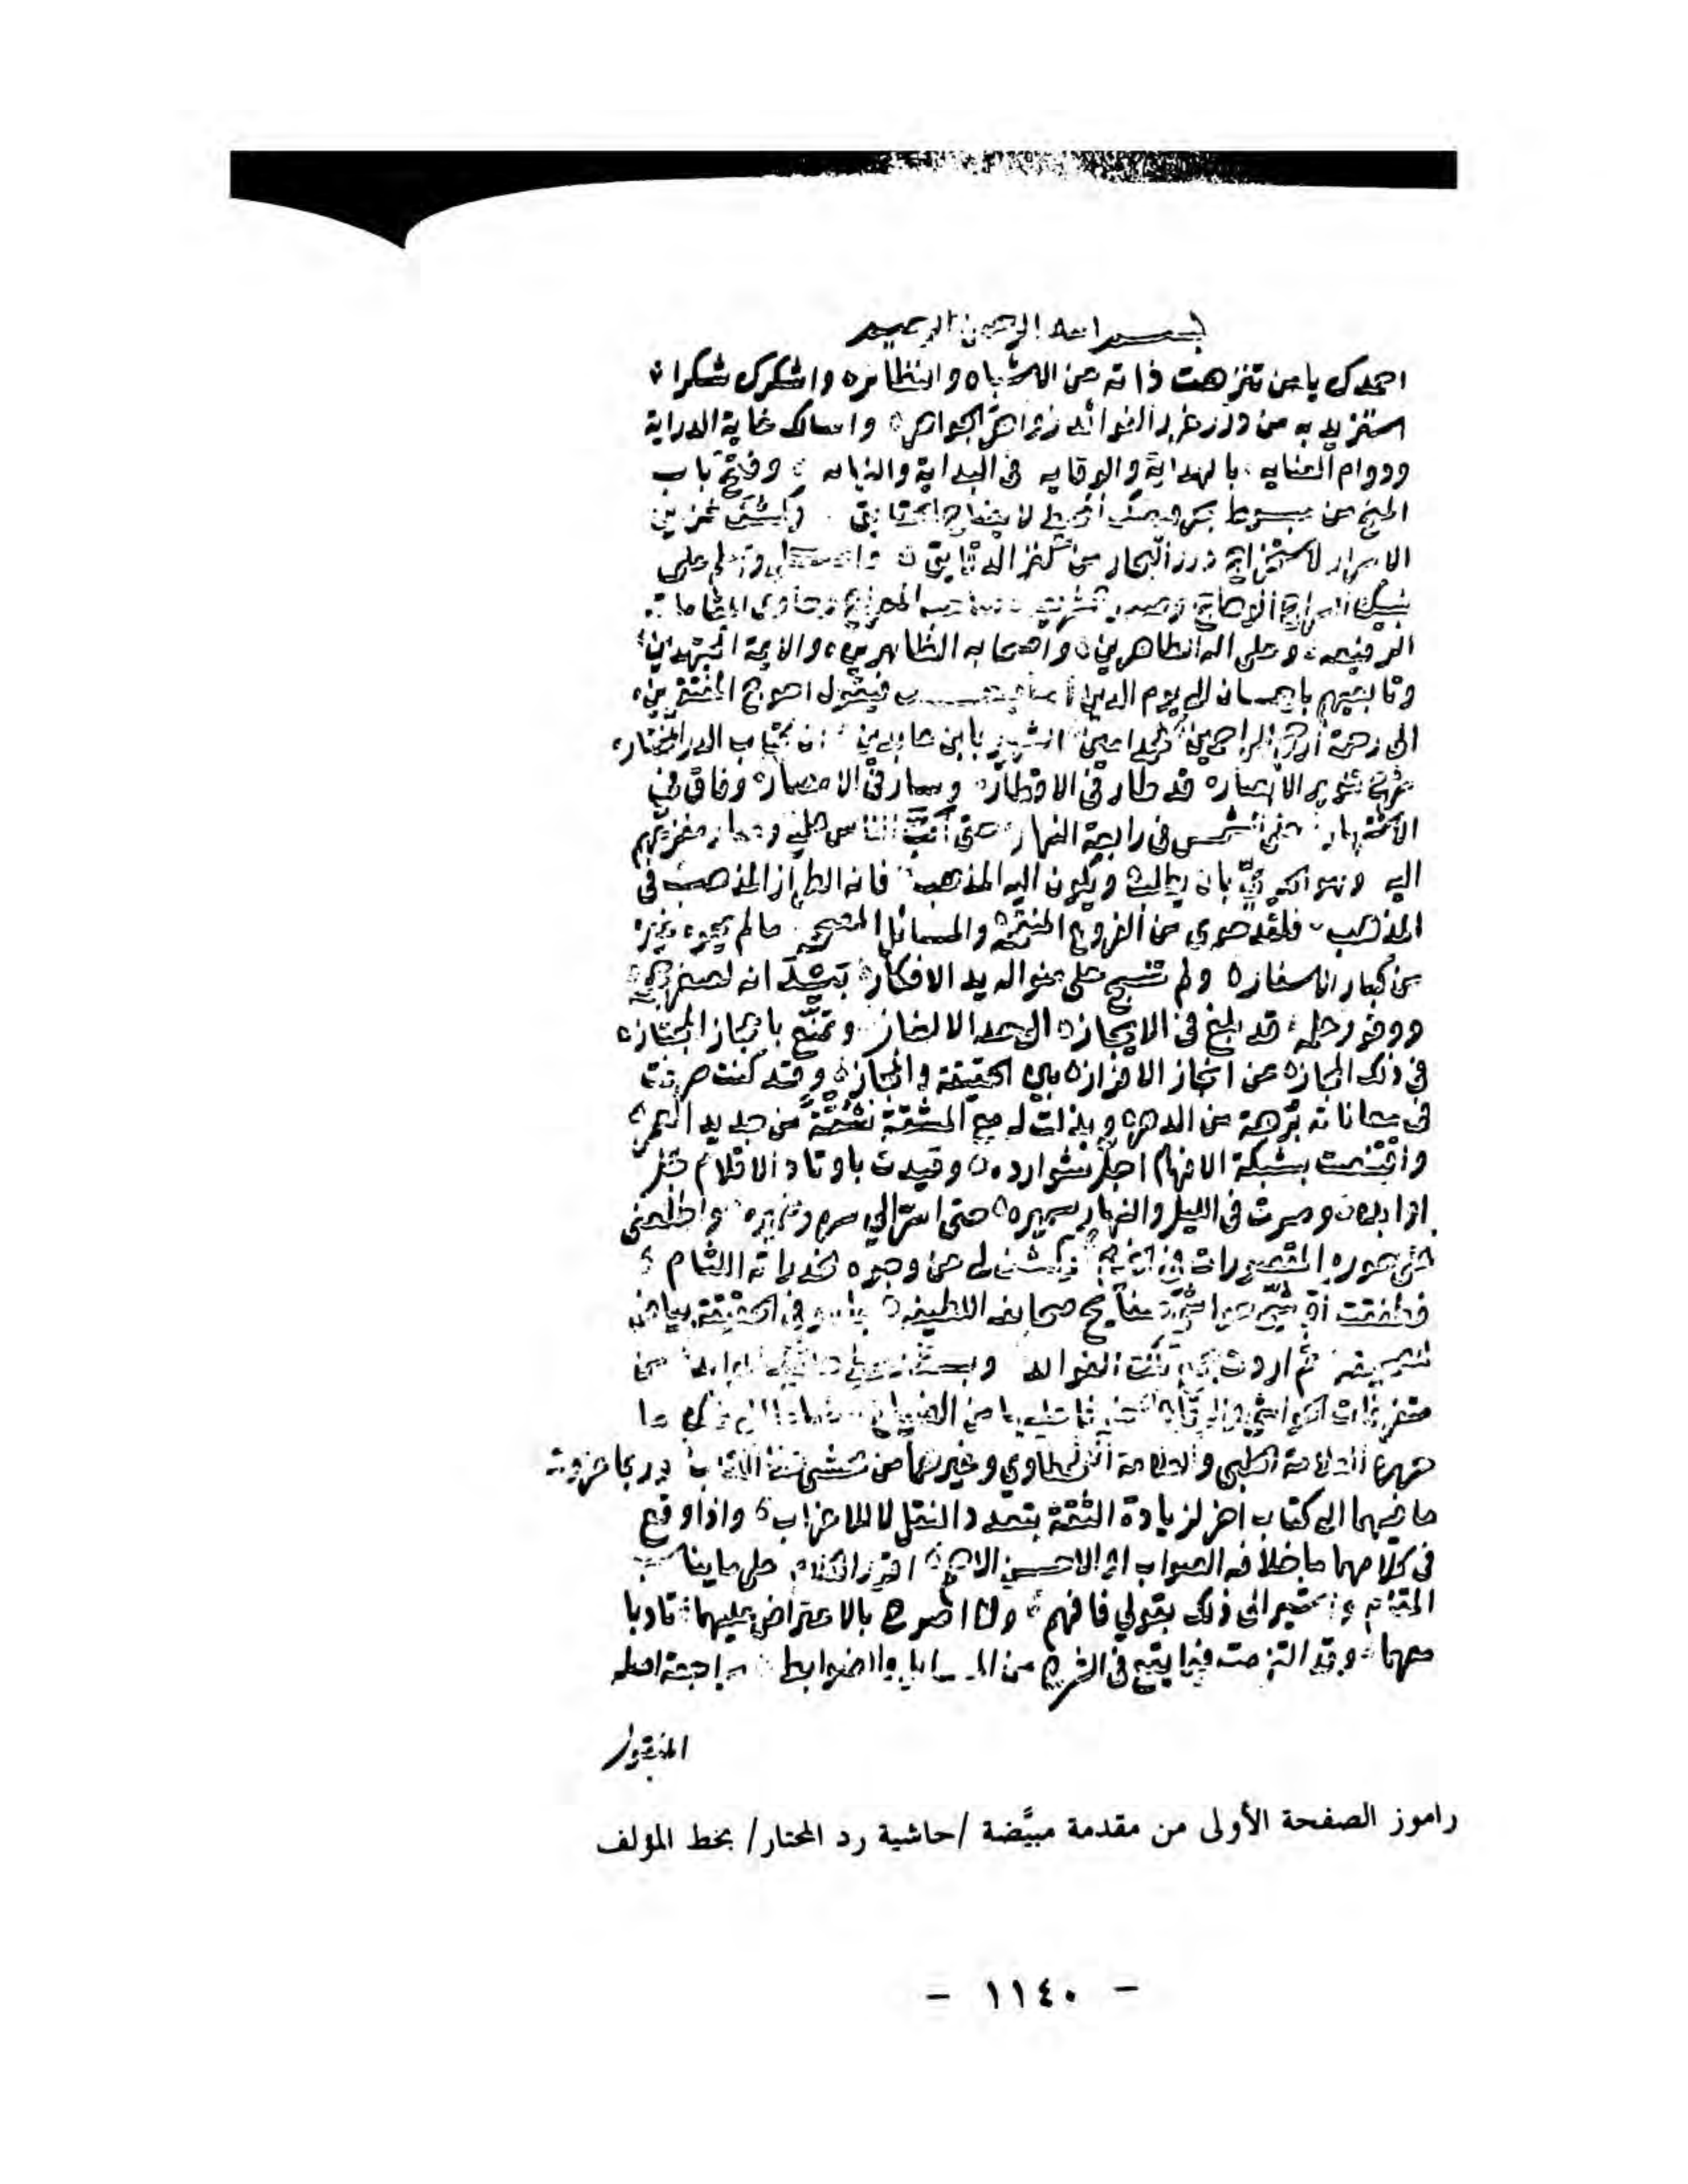 بسم الله الرحمن الرحيم
احمدك يا من تنزهت ذاته عن الاشباه والنظائره واشكرك شكرا
استزيد به من درر غرر الفوائد زواهر الجواهر واسالك غاية الدراية
ودوام العنايه بالهداية والوقايه في البداية والنهايه وفتح باب
المنح من مبسوط بحر فيضك المحيط لايضاح الحقايق وكشف خزاين
الاسرار لاستخراج درر البحار من كنز الدقايق واصلي على
نبيك السراج الوهاج وصدر الشريعة صاحب المعراج وحاوى المقامات
الرفيعه وعلى اله الطاهرين واصحابه الظاهرين والايمة المجتهدين
وتابعيهم باحسان الى يوم الدين اما بعد فيقول احوج المفتقرين
الى رحمة ارحم الراحمين محمد امين الشهير بابن عابدين ان كتاب الدر المختار
شرح تنوير الابصاره قد طار في الاقطار وسار في الامصار وفاق في
الاشتهار على الشمس في رابعة النهار حتى اكب الناس عليه وصار مفزعهم
اليه وهو الحري بان يطلب ويكون اليه المذهب فانه الطراز المذهب في
المذهب فلقد حوى من الفروع المنقحة والمسائل المصححه ما لم يحوه غيره
من كبار الاسفاره ولم تنسج على منواله يد الافكار بيد انه لصغر حجمه
ووفور علمه قد بلغ في الايجازه الى حد الالغاز وتمنع باعجاز المجتازه
في ذلك المجازه عن انجاز الافرازه بين الحقيقة والمجازه وقد كنت صرفت
في معاناته برهة من الدهر وبذلت له مع المشقة شقة من جديد العمر
واقتنصت بشبكة الافهام اجل شوارده وقيدت باوتاد الاقلام جل
اوابده وصرت في الليل والنهار سميره حتى اسر الي سره وضميره واطلعني
على حوره المقصورات في الخيام وكشف لي عن وجوه مخدراته اللثام
فطفقت اوشي حواشي صحايفه اللطيفه بما هو في الحقيقة بياض
للصحيفه ثم اردت جمع تلك الفوائد وبسط
متفرقات الحواشي
حرره العلامة الحلبي والعلامة الطحطاوي وغيرهما من محشي هذا الكتاب وربما عزوت
ما فيهما الى كتاب اخر لزيادة الثقة بتعدد النقل لا للاغراب واذا وقع
في كلامهما ما خلافه الصواب او الاحسن الاهم اقرر الكلام على ما يناسب
المقام واشير الى ذلك بقولي فافهم ولا اصرح بالاعتراض عليهما تادبا
معهما وقد التزمت فيما يقع في الشرح من المسايل والضوابط مراجعة اصله
المنقول
راموز الصفحة الأولى من مقدمة مبيَّضة /حاشية رد المحتار/ بخط المؤلف
- ١١٤٠ -